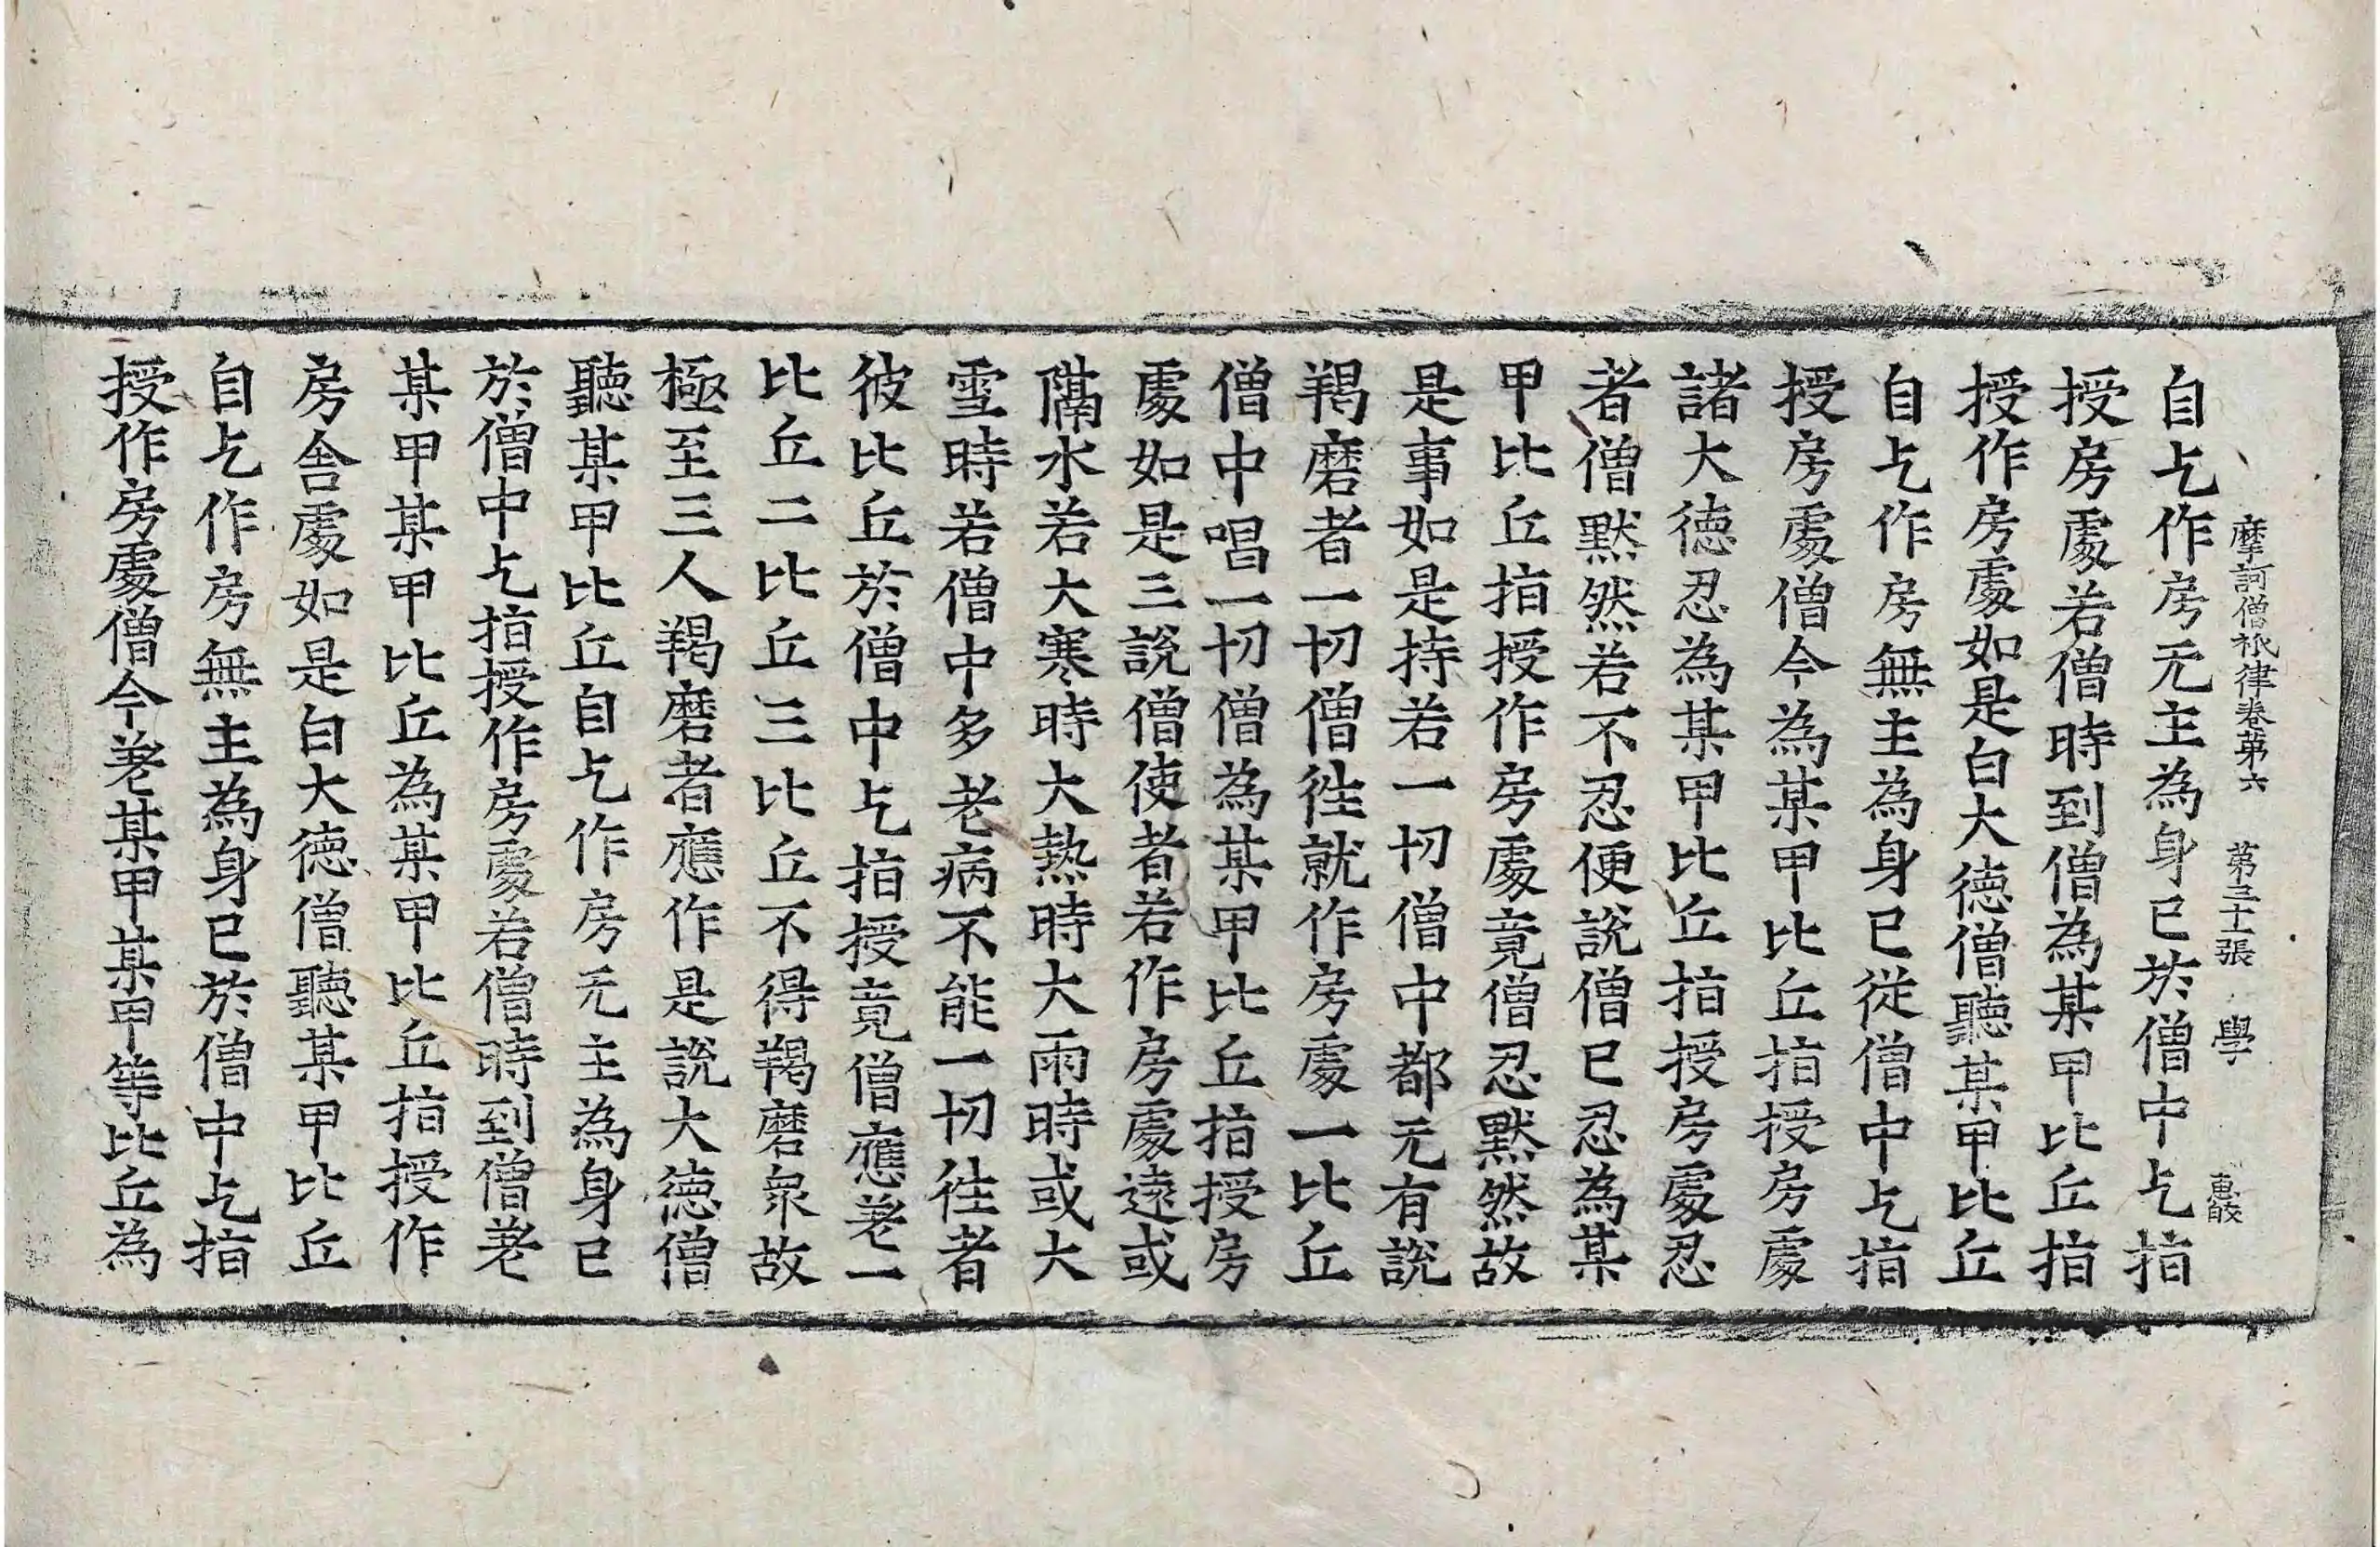 摩訶僧祇律卷第六　第三十張　學
自乞作房无主為身已於僧中乞指
授房處若僧時到僧為某甲比丘指
授作房處如是白大德僧聽某甲比丘
自乞作房無主為身已從僧中乞指
授房處僧今為某甲比丘指授房處
諸大德忍為某甲比丘指授房處忍
者僧默然若不忍便說僧已忍為某
甲比丘指授作房處竟僧忍默然故
是事如是持若一切僧中都无有說
羯磨者一切僧往就作房處一比丘
僧中唱一切僧為某甲比丘指授房
處如是三說僧使者若作房處遠或
隔水若大寒時大熱時大雨時或大
雪時若僧中多老病不能一切往者
彼比丘於僧中乞指授竟僧應差一
比丘二比丘三比丘不得羯磨眾故
極至三人羯磨者應作是說大德僧
聽某甲比丘自乞作房无主為身已
於僧中乞指授作房處若僧時到僧差
某甲某甲比丘為某甲比丘指授作
房舍處如是白大德僧聽某甲比丘
自乞作房無主為身已於僧中乞指
授作房處僧今差某甲某甲等比丘為